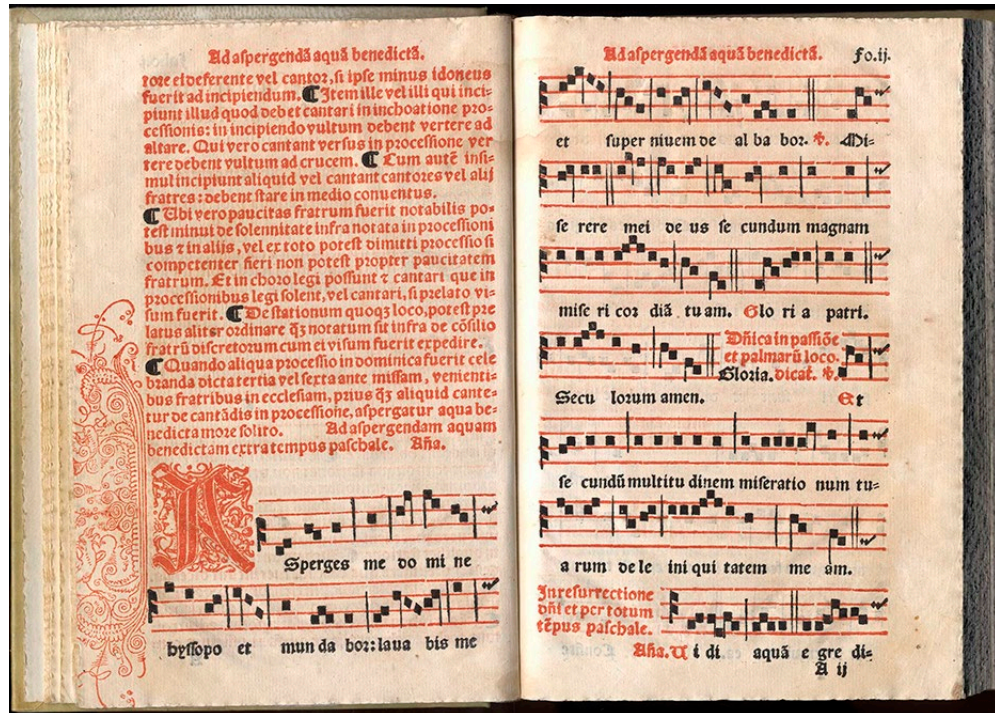 Ad aspergendã aquã benedictã.
tore et deferente vel cantor, si ipse minus idoneus
fuerit ad incipiendum. Item ille vel illi qui inci-
piunt illud quod debet cantari in inchoatione pro-
cessionis: in incipiendo vultum debent vertere ad
altare. Qui vero cantant versus in processione ver
tere debent vultum ad crucem. Cum autẽ insi-
mul incipiunt aliquid vel cantant cantores vel alij
fratres: debent stare in medio conventus.
Ubi vero paucitas fratrum fuerit notabilis po-
test minui de solennitate infra notata in processioni
bus ⁊ in alijs, vel ex toto potest dimitti processio si
competenter fieri non potest propter paucitatem
fratrum. Et in choro legi possunt ⁊ cantari que in
processionibus legi solent, vel cantari, si prelato vi-
sum fuerit. De stationum quoqꝫ loco, potest pre
latus aliter ordinare qꝫ notatum sit infra de cõsilio
fratrũ discretorum cum ei visum fuerit expedire.
Quando aliqua processio in dominica fuerit cele
branda dicta tertia vel sexta ante missam, venienti-
bus fratribus in ecclesiam, prius qꝫ aliquid cante-
tur de cantãdis in processione, aspergatur aqua be-
nedicta more solito. Ad aspergendam aquam
benedictam extra tempus paschale. Aña.
ASperges me do mi ne
hyssopo et mun da bor: laua bis me
Ad aspergendã aquã benedictã. Fo.ij.
et super niuem de al ba bor. ꝟ. Mi-
se rere mei de us se cundum magnam
mise ri cor diã tu am. Glo ri a patri.
Dñica in passiõe
et palmarũ loco.
Gloria. dicat. ꝟ.
Secu lorum amen. Et
se cundũ multitu dinem miseratio num tu-
a rum de le ini qui tatem me am.
In resurrectione
dñi et per totum
tẽpus paschale.
Aña. Ui di aquã e gre di-
A ij